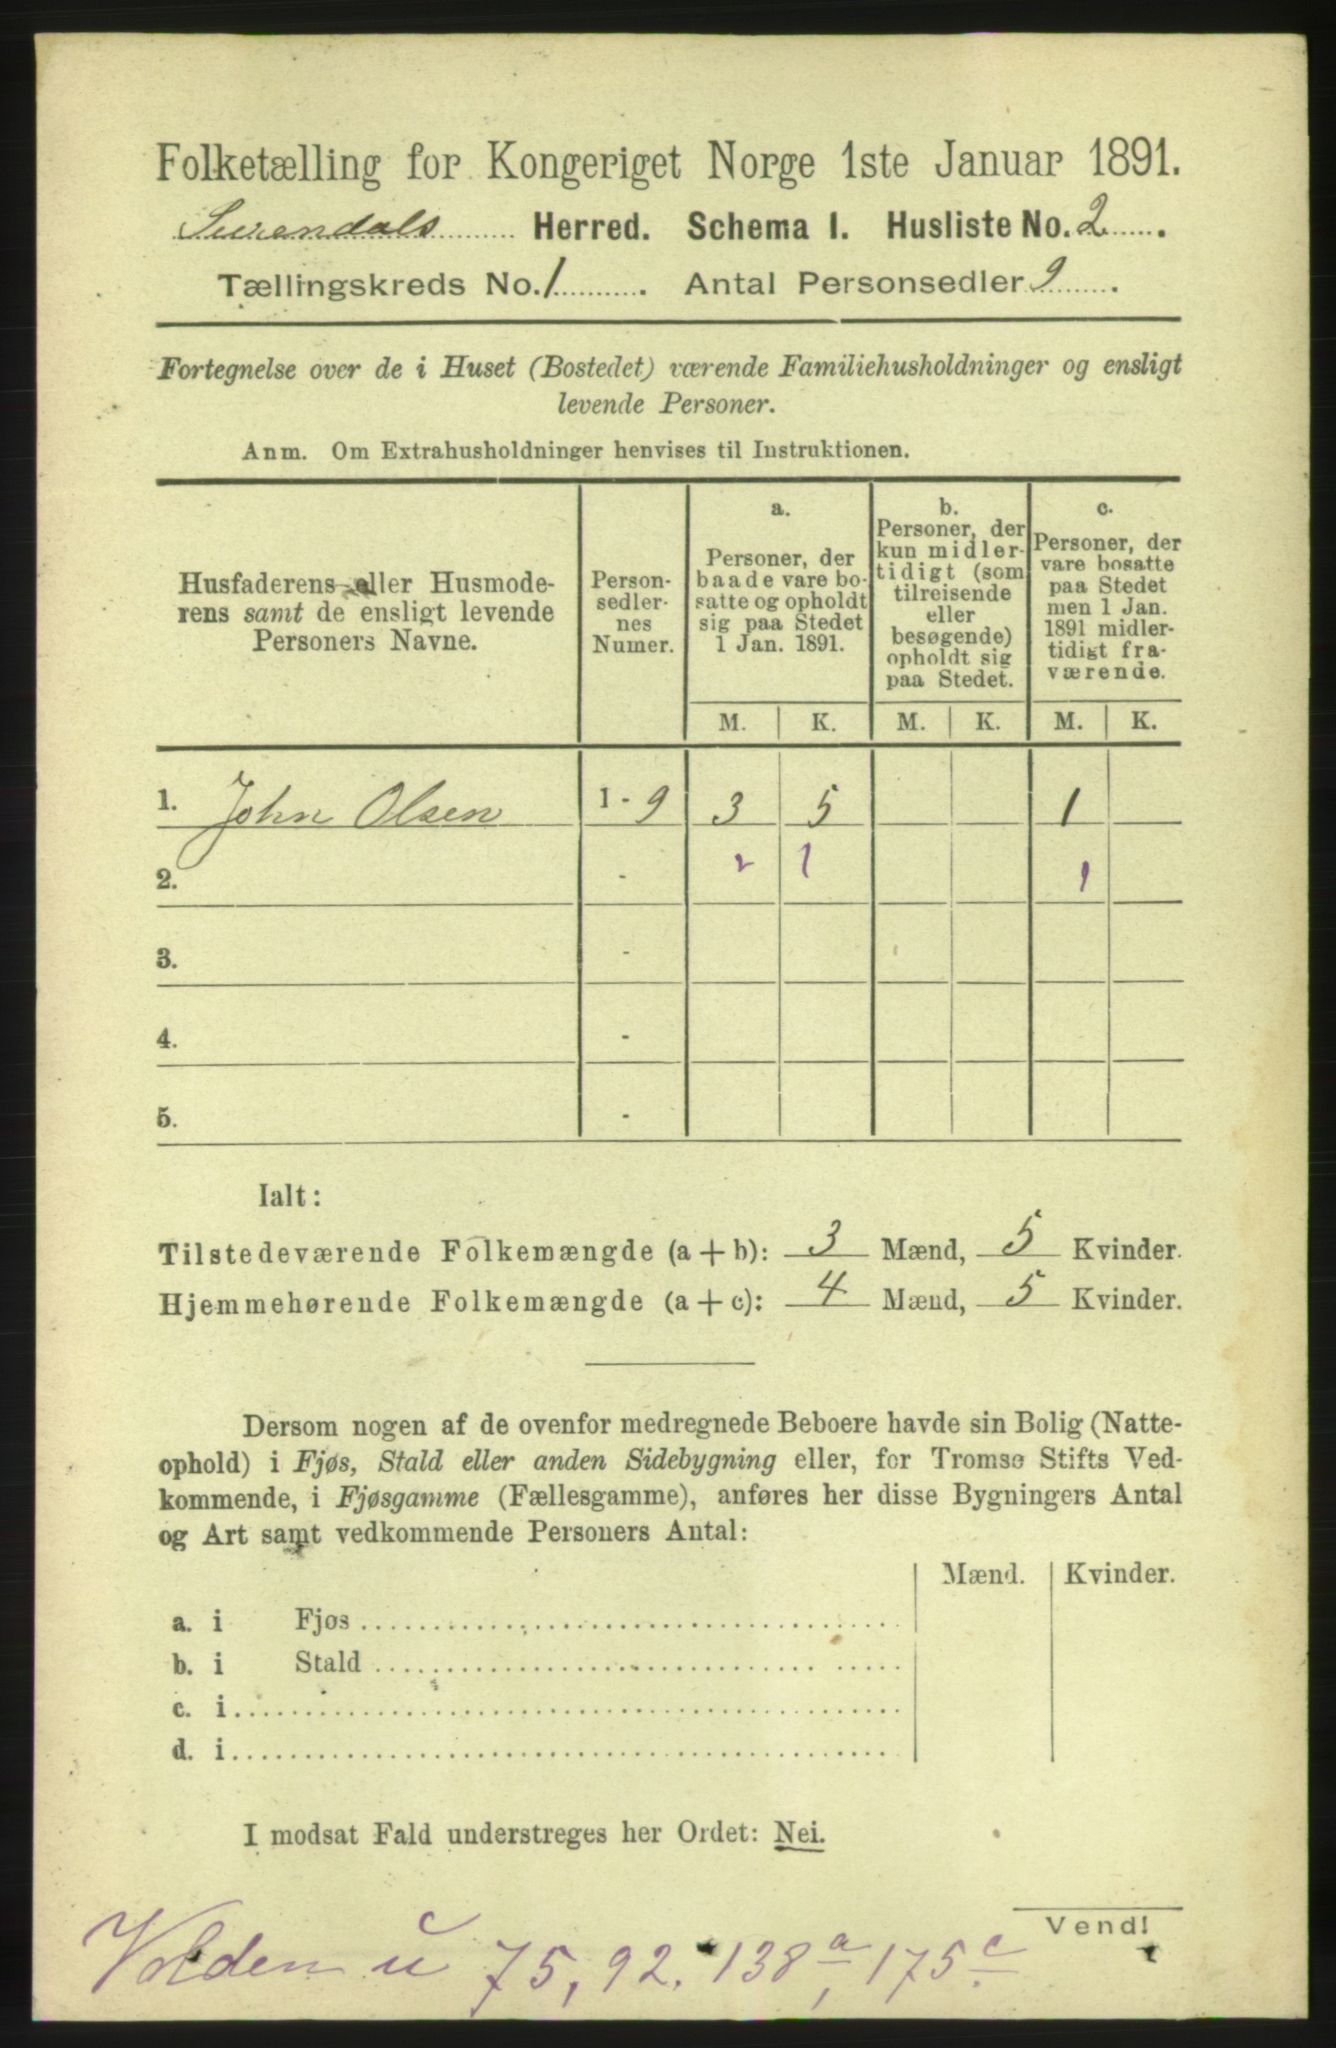 Folketælling for Kongeriget Norge 1ste Januar 1891.
Surendals Herred. Schema I. Husliste No. 2.
Tællingskreds No. 1. Antal Personsedler 9.
Fortegnelse over de i Huset (Bostedet) værende Familiehusholdninger og ensligt
levende Personer.
Anm. Om Extrahusholdninger henvises til Instruktionen.
Husfaderens eller Husmode-
rens samt de ensligt levende
Personers Navne.
Person-
sedler-
nes
Numer.
a.
Personer, der
baade vare bo-
satte og opholdt
sig paa Stedet
1 Jan. 1891.
b.
Personer, der
kun midler-
tidigt (som
tilreisende
eller
besøgende)
opholdt sig
paa Stedet.
c.
Personer, der
vare bosatte
paa Stedet
men 1 Jan.
1891 midler-
tidigt fra-
værende.
M. K. M. K. M. K.
1. John Olsen 1 - 9 3 5 1
2. - 2 1 1
3. -
4. -
5. -
Ialt:
Tilstedeværende Folkemængde (a + b): 3 Mænd, 5 Kvinder.
Hjemmehørende Folkemængde (a + c): 4 Mænd, 5 Kvinder.
Dersom nogen af de ovenfor medregnede Beboere havde sin Bolig (Natte-
ophold) i Fjøs, Stald eller anden Sidebygning eller, for Tromsø Stifts Ved-
kommende, i Fjøsgamme (Fællesgamme), anføres her disse Bygningers Antal
og Art samt vedkommende Personers Antal:
Mænd. Kvinder.
a. i Fjøs
b. i Stald
c. i
d. i
I modsat Fald understreges her Ordet: Nei.
Vend!
Volden u 75, 92. 138a, 175c